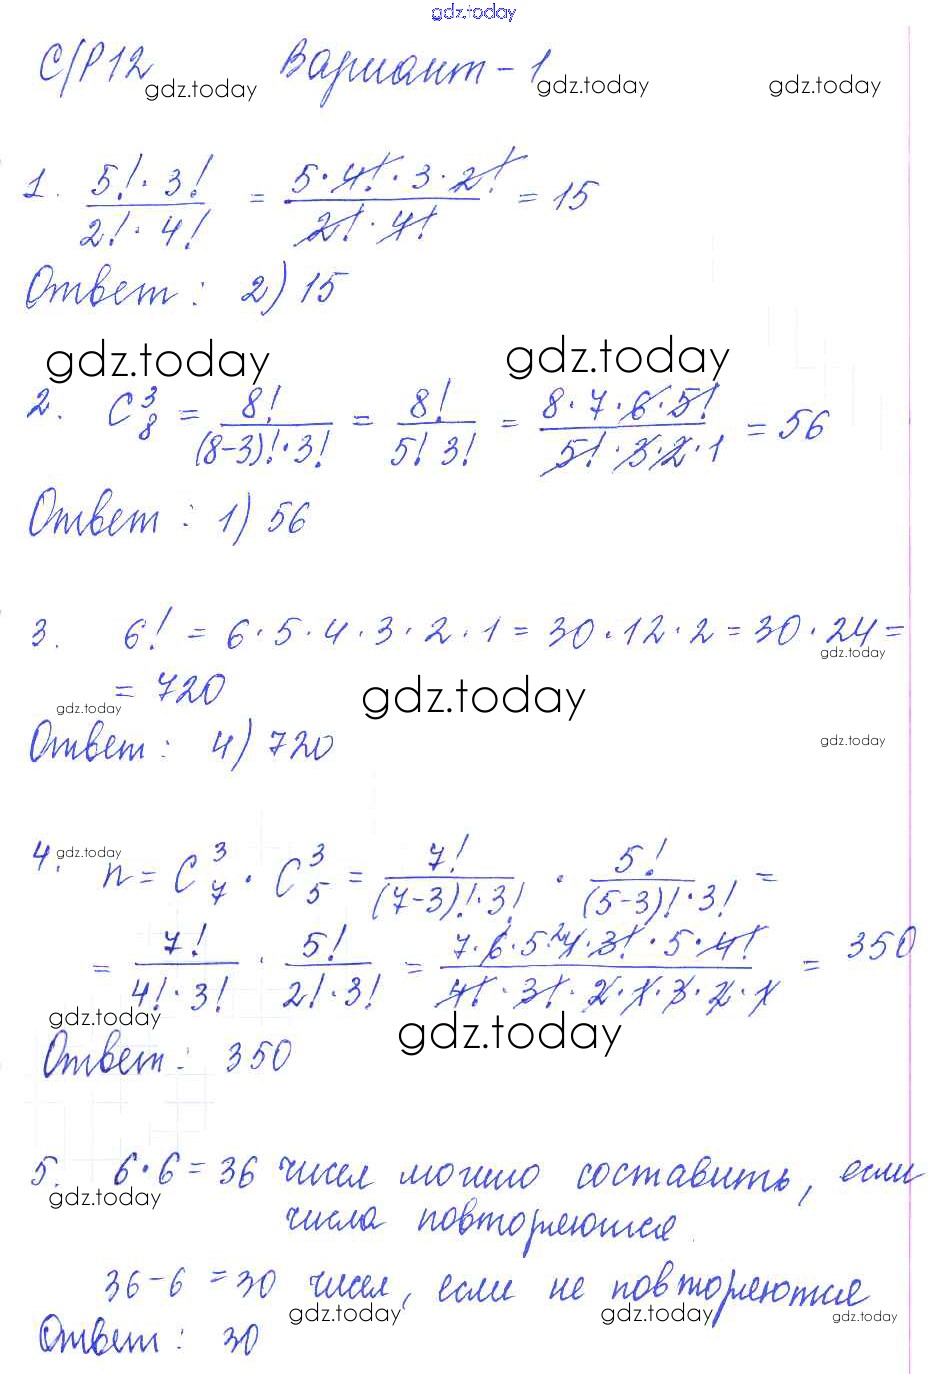 gdz.today
С/Р 12 Вариант - 1
gdz.today gdz.today gdz.today
1. 5! · 3! / 2! · 4! = 5 · 4! · 3 · 2! / 2! · 4! = 15
Ответ : 2) 15
gdz.today gdz.today
2. C_8^3 = 8! / (8-3)! · 3! = 8! / 5! 3! = 8 · 7 · 6 · 5! / 5! · 3 · 2 · 1 = 56
Ответ : 1) 56
3. 6! = 6 · 5 · 4 · 3 · 2 · 1 = 30 · 12 · 2 = 30 · 24 =
gdz.today
= 720
gdz.today gdz.today
Ответ : 4) 720
gdz.today
4. gdz.today n = C_7^3 · C_5^3 = 7! / (7-3)! · 3! · 5! / (5-3)! · 3! =
= 7! / 4! · 3! · 5! / 2! · 3! = 7 · 6 · 5 · 2 4 · 3! · 5 · 4! / 4! · 3! · 2 · 1 · 3 · 2 · 1 = 350
gdz.today gdz.today
Ответ : 350
5. 6 · 6 = 36 чисел можно составить, если
gdz.today
числа повторяются.
36 - 6 = 30 чисел, если не повторяются
gdz.today gdz.today gdz.today
Ответ : 30